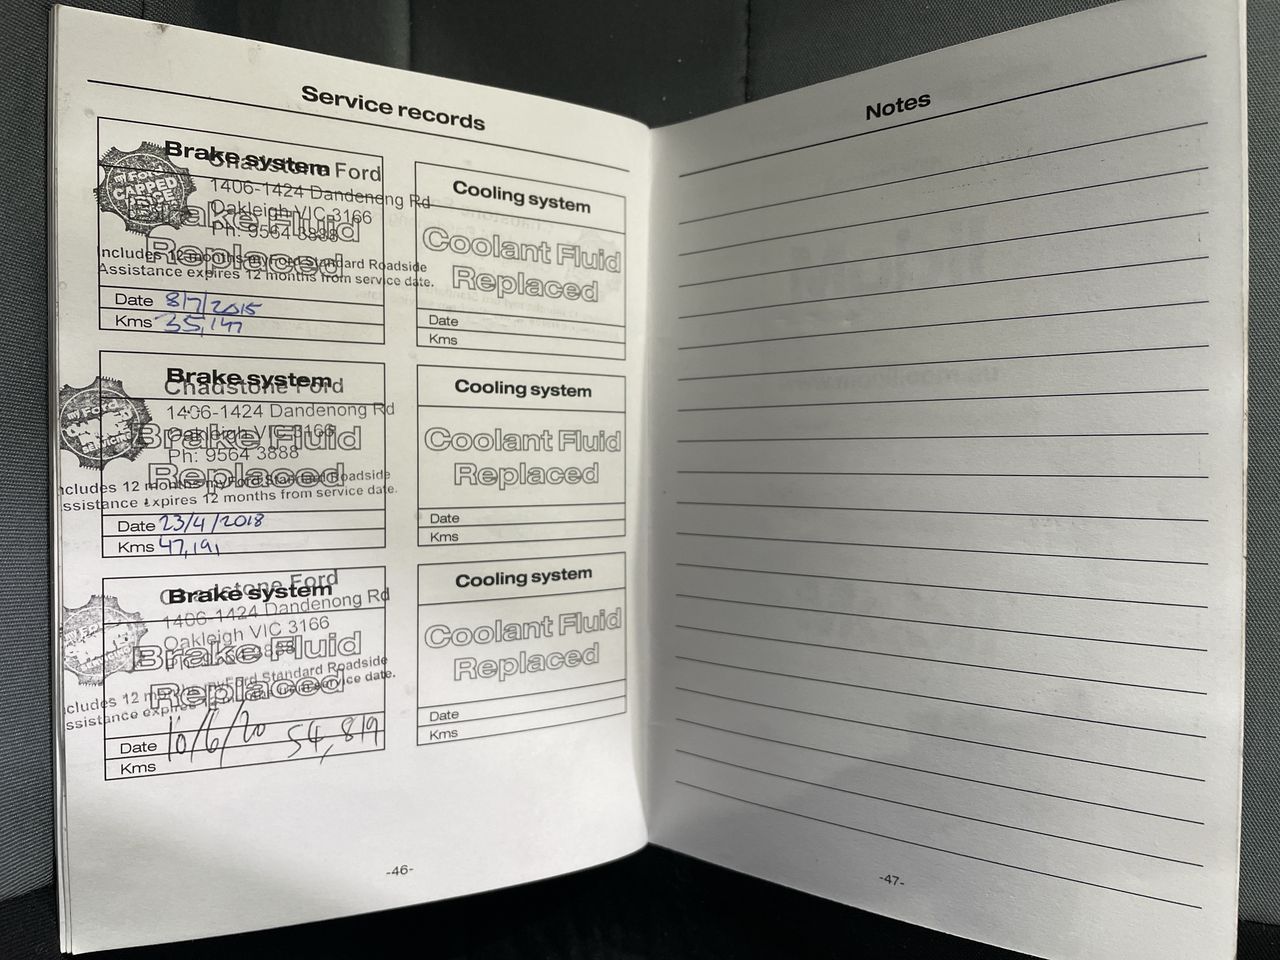 Service records
Brake system
Chadstone Ford
1406-1424 Dandenong Rd
Oakleigh VIC 3166
Ph: 9564 3888
Brake Fluid
Replaced
Includes 12 months myFord Standard Roadside
Assistance expires 12 months from service date.
Date 8/7/2015
Kms 35,147
Brake system
Chadstone Ford
1406-1424 Dandenong Rd
Oakleigh VIC 3166
Ph: 9564 3888
Brake Fluid
Replaced
ncludes 12 months myFord Standard Roadside
ssistance expires 12 months from service date.
Date 23/4/2018
Kms 47,191
Brake system
Chadstone Ford
1406-1424 Dandenong Rd
Oakleigh VIC 3166
Brake Fluid
Replaced
cludes 12 months myFord Standard Roadside
ssistance expires 12 months from service date.
Date 10/6/20 54,819
Kms
Cooling system
Coolant Fluid
Replaced
Date
Kms
Cooling system
Coolant Fluid
Replaced
Date
Kms
Cooling system
Coolant Fluid
Replaced
Date
Kms
-46-
Notes
-47-